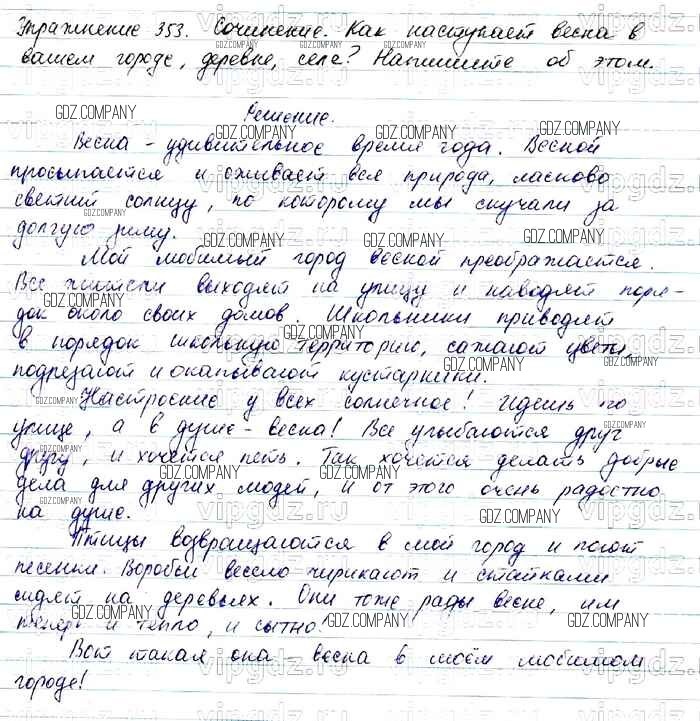 Упражнение 353. Сочинение. Как наступает весна в
вашем городе, деревне, селе? Напишите об этом.
Решение.
Весна - удивительное время года. Весной
просыпается и оживает вся природа, ласково
светит солнцу, по которому мы скучали за
долгую зиму.
Мой любимый город весной преображается.
Все жители выходят на улицу и наводят поря-
док около своих домов. Школьники приводят
в порядок школьную территорию, сажают цветы,
подрезают и окапывают кустарники.
Настроение у всех солнечное! Идешь по
улице, а в душе - весна! Все улыбаются друг
другу, и хочется петь. Так хочется делать добрые
дела для других людей, и от этого очень радостно
на душе.
Птицы возвращаются в мой город и поют
песенки. Воробьи весело чирикают и стайками
сидят на деревьях. Они тоже рады весне, им
теперь и тепло, и сытно!
Вот такая она весна в моём любимом
городе!
GDZ.COMPANY
vipgdz.ru